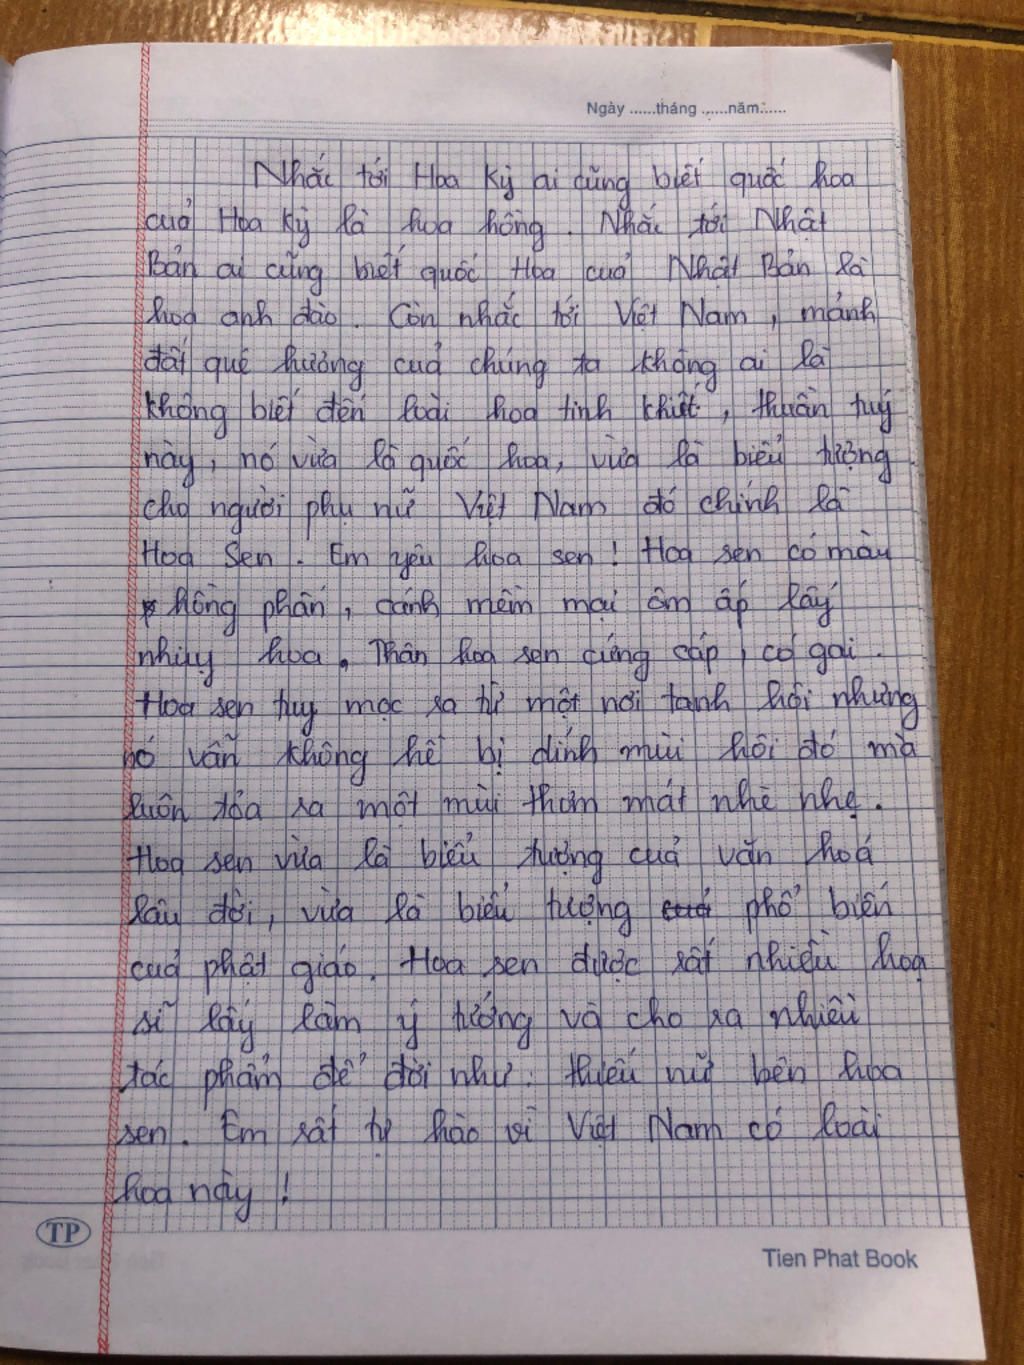 Ngày ......tháng ......năm......
Nhắc tới Hoa Kỳ ai cũng biết quốc hoa
cuả Hoa Kỳ là hoa hồng. Nhắc tới Nhật
Bản ai cũng biết quốc Hoa cuả Nhật Bản là
hoa anh đào. Còn nhắc tới Việt Nam, mảnh
đất quê hương cuả chúng ta không ai là
không biết đến loài hoa tinh khiết, thuần tuý
này, nó vừa là quốc hoa, vừa là biểu tượng
cho người phụ nữ Việt Nam đó chính là
Hoa Sen. Em yêu hoa sen! Hoa sen có màu
hồng phấn, cánh mềm mại ôm ấp lấy
nhuỵ hoa. Thân hoa sen cứng cáp, có gai.
Hoa sen tuy mọc ra từ một nơi tanh hôi nhưng
nó vẫn không hề bị dính mùi hôi đó mà
luôn tỏa ra một mùi thơm mát nhè nhẹ.
Hoa sen vừa là biểu tượng cuả văn hoá
lâu đời, vừa là biểu tượng phổ biến
cuả phật giáo. Hoa sen được rất nhiều hoạ
sĩ lấy làm ý tưởng và cho ra nhiều
tác phẩm để đời như: thiếu nữ bên hoa
sen. Em rất tự hào vì Việt Nam có loài
hoa này!
TP
Tien Phat Book